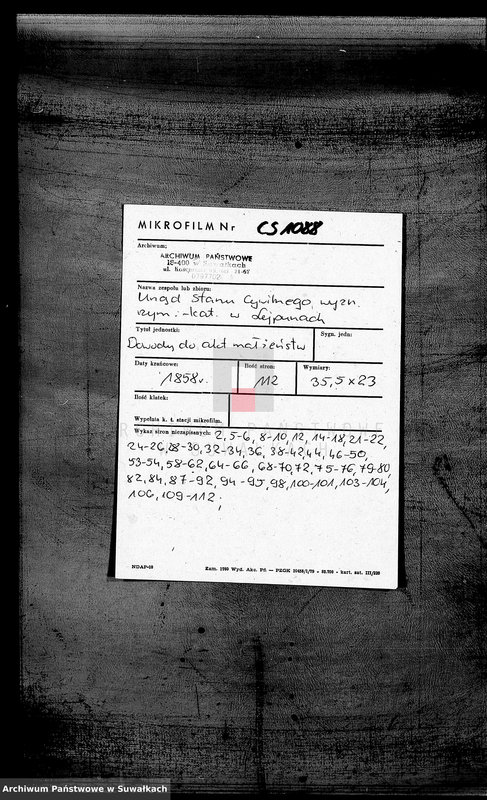 MIKROFILM Nr CS 1088
Archiwum;
ARCHIWUM PAŃSTWOWE
16-400 w Suwałkach
Nazwa zespołu lub zbioru:
Urząd Stanu Cywilnego wyzn.
rzym.-kat. w Lejpunach
Tytuł jednostki:
Sygn. jedn:
Dowody do akt małżeństw
Daty krańcowe:
Ilość stron:
Wymiary:
1858 r.
112
35,5 x 23
Ilość klatek:
Wypełnia k. t. stacji mikrofilm.
Wykaz stron niezapisanych: 2, 5-6, 8-10, 12, 14-18, 21-22,
24-26, 28-30, 32-34, 36, 38-42, 44, 46-50,
53-54, 58-62, 64-66, 68-70, 72, 75-76, 79-80
82, 84, 87-92, 94-95, 98, 100-101, 103-104,
106, 109-112.
Archiwum Państwowe w Suwałkach